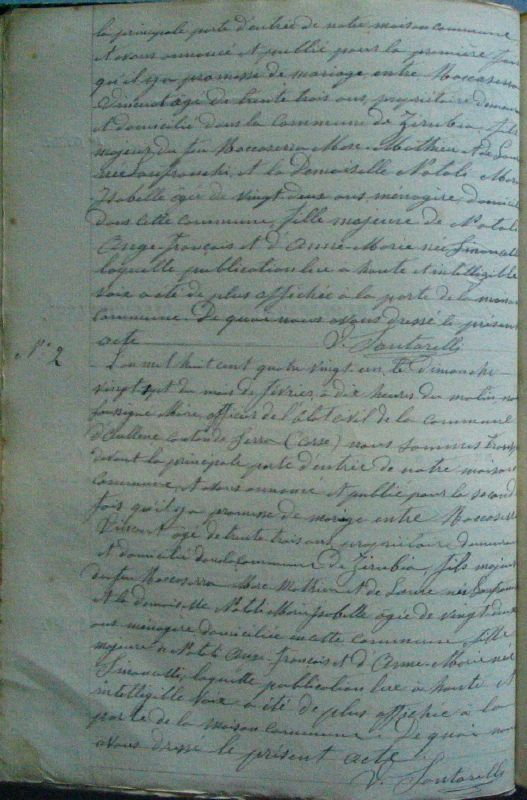 la principale porte d'entrée de notre maison commune
et avons annoncé et publié pour la première fois
qu'il y a promesse de mariage entre Roccaserra
Vincent âgé de trente trois ans, propriétaire demeurant
et domicilié dans la commune de Zerubia, fils
majeur du feu Roccaserra Marc-Mathieu et de Laure
née Lanfranchi, et la Demoiselle Natali Marie
Isabelle âgée de vingt deux ans ménagère, domiciliée
dans cette commune, fille majeure de Natali
Ange-François et d'Anne-Marie née Simoncelli
laquelle publication lue à haute et intelligible
voix a été de plus affichée à la porte de la maison
commune. De quoi nous avons dressé le présent
acte V. Santarelli
N° 2
L'an mil huit cent quatre vingt un, le dimanche
vingt sept du mois de février, à dix heures du matin, nous
soussigné Maire, officier de l'état civil de la commune
d'Aullene canton de Serra (Corse) nous sommes transporté
devant la principale porte d'entrée de notre maison
commune, et avons annoncé et publié pour la seconde
fois qu'il y a promesse de mariage entre Roccaserra
Vincent âgé de trente trois ans, propriétaire demeurant
et domicilié dans la commune de Zerubia, fils majeur
du feu Roccaserra Marc Mathieu et de Laure née Lanfranchi
et la demoiselle Natali Marie Isabelle âgée de vingt deux
ans ménagère domiciliée en cette commune fille
majeure de Natali Ange-François et d'Anne-Marie née
Simoncelli, laquelle publication lue à haute et
intelligible voix a été de plus affichée à la
porte de la maison commune. De quoi nous
avons dressé le présent acte
V. Santarelli